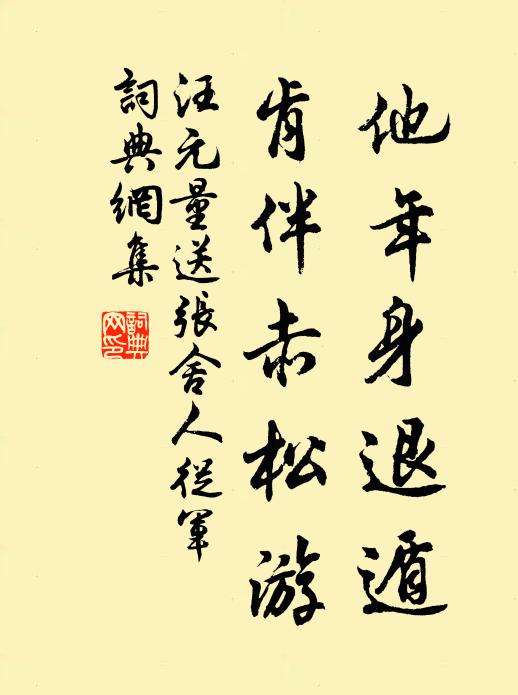 他年身退遁
肯伴赤松游
汪元量送張舍人從軍
詞典網集
詞典網印